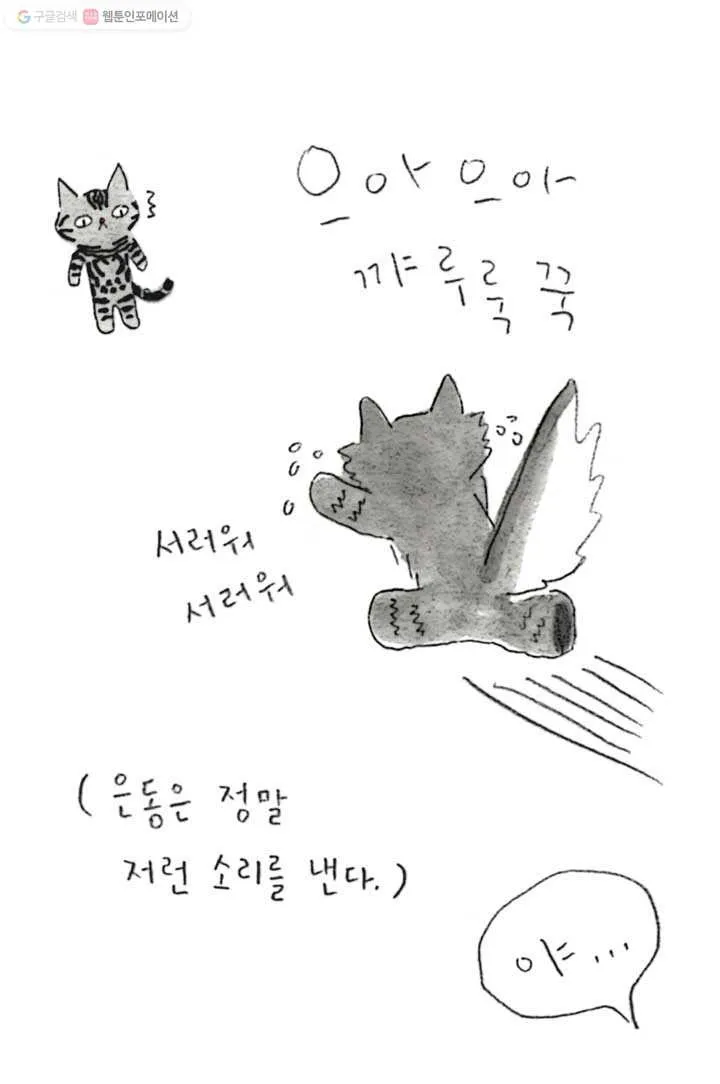 구글검색 웹툰인포메이션
으아 으아
꺄루룩 꾹
서러워
서러워
(은동은 정말
저런 소리를 낸다.)
야...